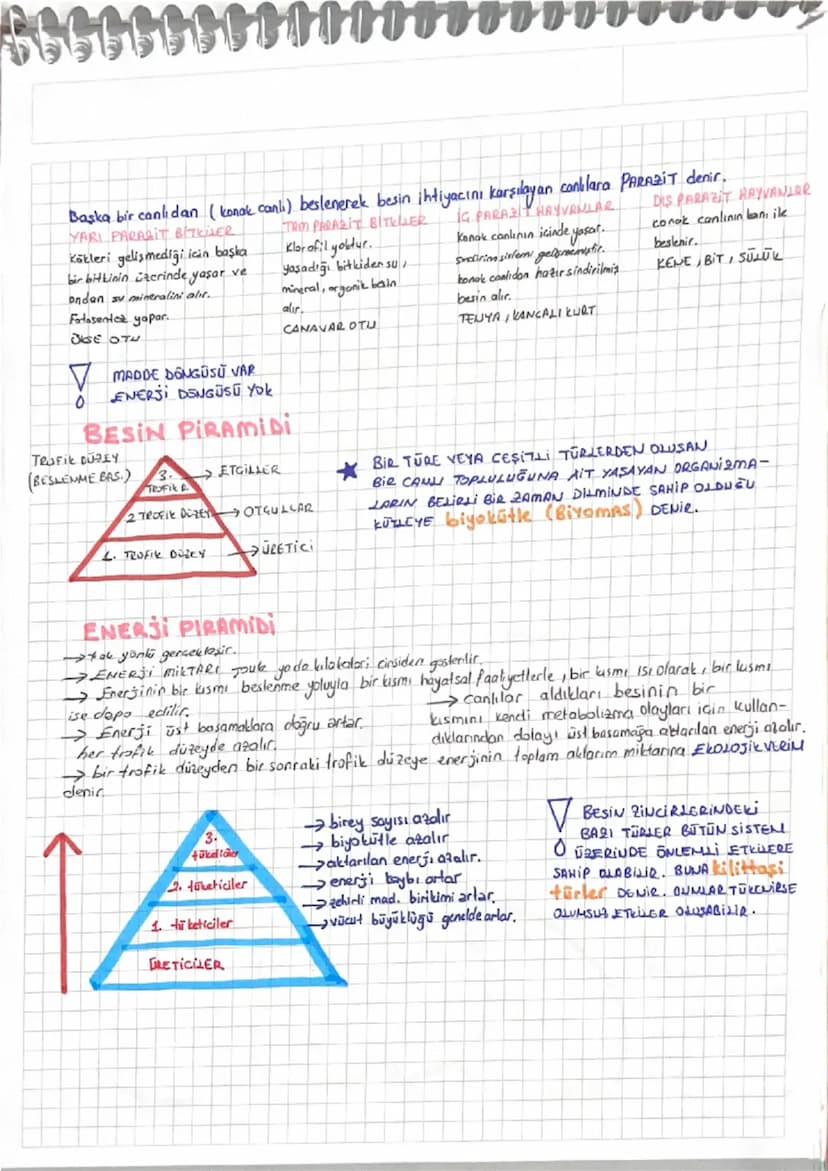 Başka bir canlıdan (konak canlı) beslenerek besin ihtiyacını karşılayan canlılara PARAZİT denir.
YARI PARAZİT BİTKİLER
Kökleri gelişmediği için başka
bir bitkinin üzerinde yaşar ve
ondan su mineralini alır.
Fotosentez yapar.
ÖKSE OTU
TAM PARAZİT BİTKİLER
Klorofil yoktur.
yaşadığı bitkiden su,
mineral, organik besin
alır.
CANAVAR OTU
İÇ PARAZİT HAYVANLAR
Konak canlının içinde yaşar.
Sindirim sistemi gelişmemiştir.
konak canlıdan hazır sindirilmiş
besin alır.
TENYA, KANCALI KURT
DIŞ PARAZİT HAYVANLAR
conak canlının kanı ile
beslenir.
KENE, BİT, SÜLÜK
MADDE DÖNGÜSÜ VAR
ENERJİ DÖNGÜSÜ YOK
BESİN PİRAMİDİ
TROFİK DÜZEY
(BESLENME BAS.)
3.
TROFİK D.
→ ETÇİLLER
2 TROFİK DÜZEY → OTÇULLAR
1. TROFİK DÜZEY → ÜRETİCİ
★ BİR TÜRE VEYA ÇEŞİTLİ TÜRLERDEN OLUŞAN
BİR CANLI TOPLULUĞUNA AİT YAŞAYAN ORGANİZMA-
LARIN BELİRLİ BİR ZAMAN DİLMİNDE SAHİP OLDUĞU
KÜTLEYE biyokütle (BİYOMAS) DENİR.
ENERJİ PİRAMİDİ
→ tek yönlü gerçekleşir.
→ ENERJİ MİKTARI joule ya da kilokalori cinsiden gösterilir.
→ Enerjinin bir kısmı beslenme yoluyla bir kısmı hayatsal faaliyetlerle, bir kısmı ısı olarak, bir kısmı
ise depo edilir.
→ Enerji üst basamaklara doğru artar.
her trofik düzeyde azalır.
→ canlılar aldıkları besinin bir
kısmını kendi metabolizma olayları için kullan-
dıklarından dolayı üst basamağa aktarılan enerji azalır.
→ bir trofik düzeyden bir sonraki trofik düzeye enerjinin toplam aktarım miktarına EKOLOJİK VERİM
denir.
3.
tüketiciler
2. tüketiciler
1. tüketiciler
ÜRETİCİLER
→ birey sayısı azalır
→ biyokütle azalır
→ aktarılan enerji azalır.
→ enerji kaybı artar
→ zehirli mad. birikimi artar.
→ vücut büyüklüğü genelde artar.
BESİN ZİNCİRLERİNDEKİ
BAZI TÜRLER BÜTÜN SİSTEM
ÜZERİNDE ÖNLEMLİ ETKİLERE
SAHİP OLABİLİR. BUNA kilittaşi
türler DENİR. BUNLAR TÜKENİRSE
OLUMSUZ ETKİLER OLUŞABİLİR.